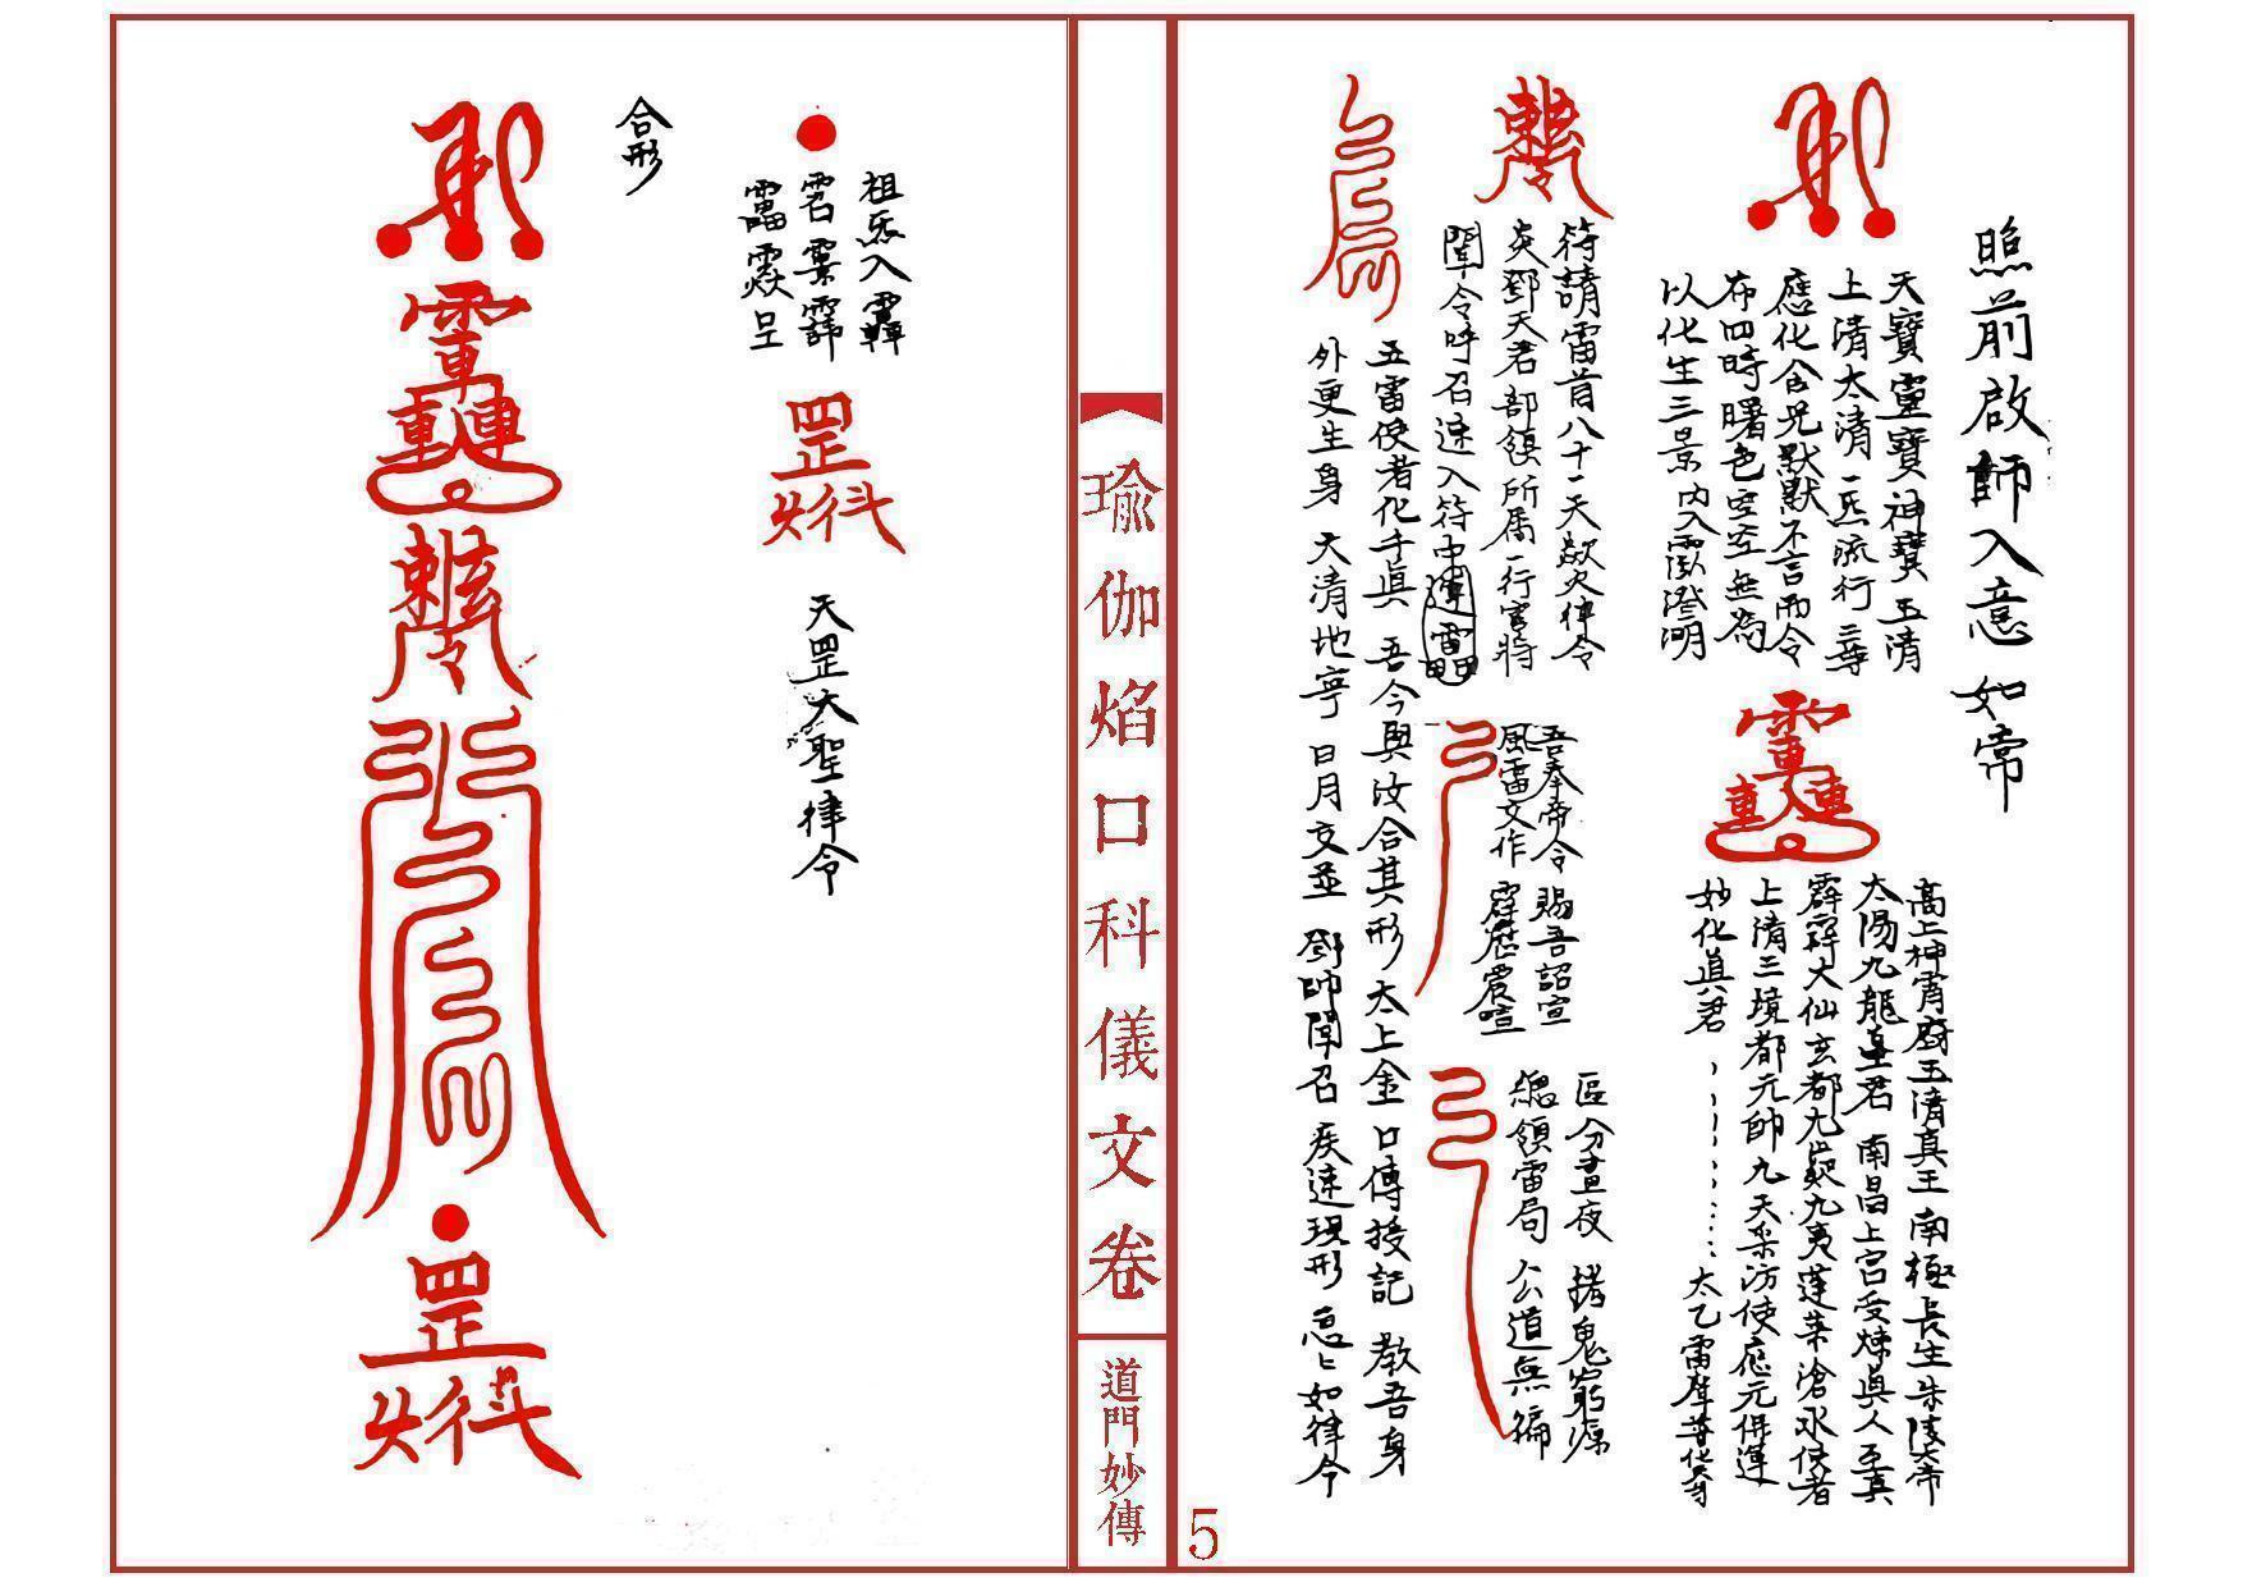 照前啟師入意如常
天寶靈寶神寶玉清
上清太清一炁流行三尊
應化含光默默不言而令
布四時曙色空空無為
以化生三景內入澄明
高上神霄府玉清真王南極長生朱陵大帝
太陽九龍皇君南昌上宮受煉真人至真
大仙玄都九炁九夷蓬萊滄水使者
上清三境都元帥九天採訪使應元保運
妙化真君
太乙雷聲普化天尊
符請雷首八十一天欻火律令
炎鄧天君部領所屬一行官將
聞令呼召速入符中
吾奉帝令
風雷文作
賜吾詔宣
霹靂震喧
區分晝夜
總領雷局
搭鬼窮源
公道無偏
五雷使者化手真吾今與汝合其形太上金口傳授記教吾身
外更生身天清地寧日月交並鄧帥聞召疾速現形急急如律令
瑜伽焰口科儀文卷
道門妙傳
5
祖炁入
罡
天罡大聖律令
合形
罡